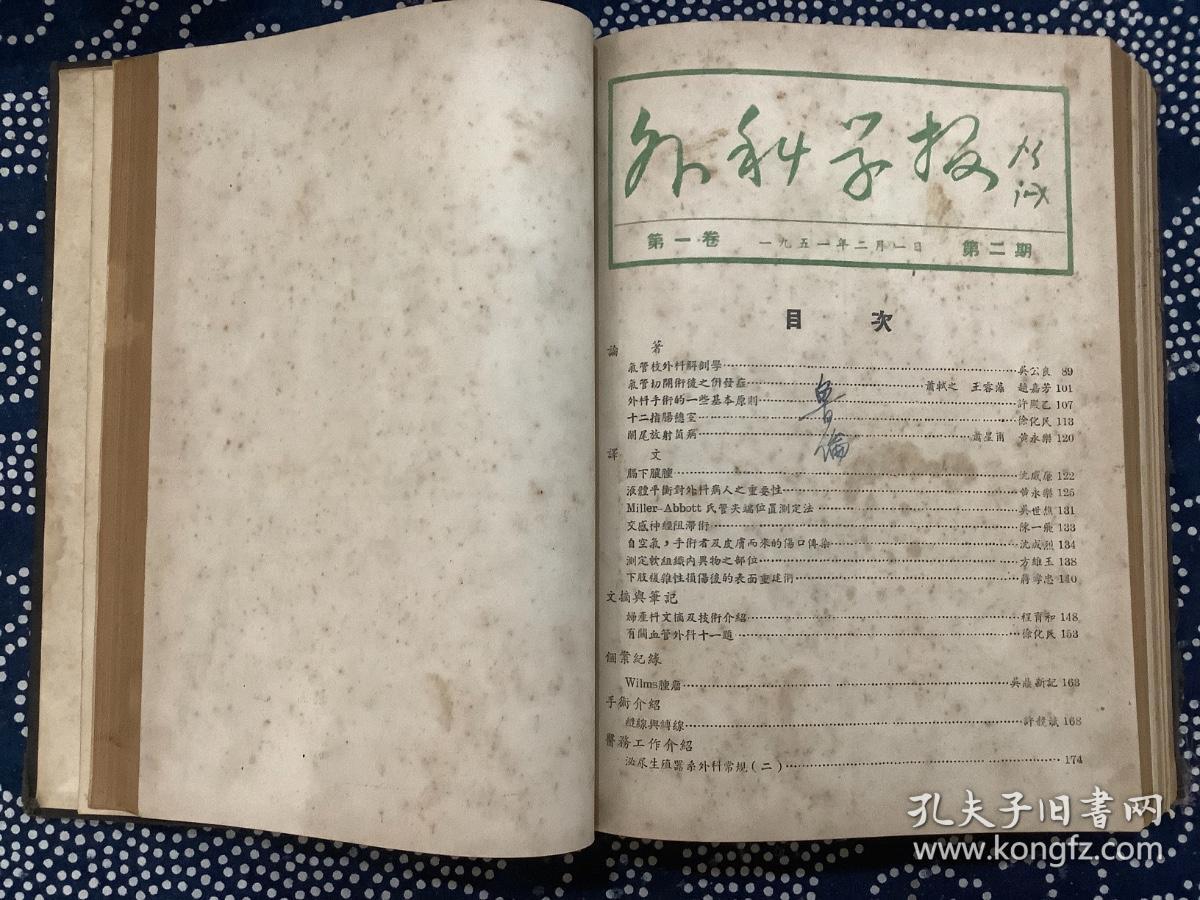 外科学报
第一卷 一九五一年二月一日 第二期
目次
論著
氣管枝外科解剖學 吳公良 89
氣管切開術後之併發症 蕭軾之 王睿 趙嘉芳 101
外科手術的一些基本原則 許殿乙 107
十二指腸憩室 徐化民 113
闌尾放射菌病 蕭星甫 黃永樂 120
譯文
膈下膿腫 沈威廉 122
液體平衡對外科病人之重要性 黃永樂 125
Miller-Abbott 氏管尖端位置測定法 吳世 131
交感神經阻滯術 陳一飛 133
自空氣,手術者及皮膚而來的傷口傳染 沈成烈 134
測定軟組織內異物之部位 方雄玉 138
下肢複雜性損傷後的表面重建術 忠 140
文摘與筆記
婦產科文摘及技術介紹 程育和 148
有關血管外科十一題 徐化民 153
個案紀錄
Wilms腫瘤 吳鼎新記 163
手術介紹
縫線與縛線 許競斌 168
醫務工作介紹
泌尿生殖器系外科常規(二) 174
魯倫
孔夫子旧書网
www.kongfz.com